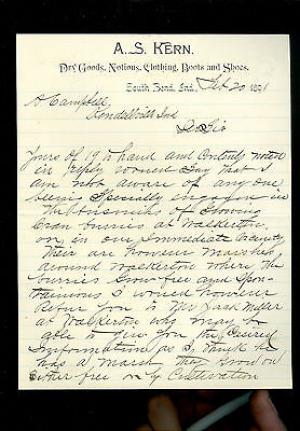 A. S. KERN.
Dry Goods, Notions, Clothing, Boots and Shoes.
South Bend, Ind., Feb 20 1891
A Campbell,
Kendallville Ind
D Sir
Yours of 19 to hand and contents noted
in reply would say that I
am not aware of any one
being specially engaged in
the business of growing
Cran burries at Walkerton
or in our immediate vicinity
their are however marshes
around Walkerton where the
burries grow free and spon-
taneious I would however
Refur you to Mr Jack Miller
at Walkerton who may be
able to give you the Desired
information as I think he
has a marsh they grow on
either free or by Cultivation